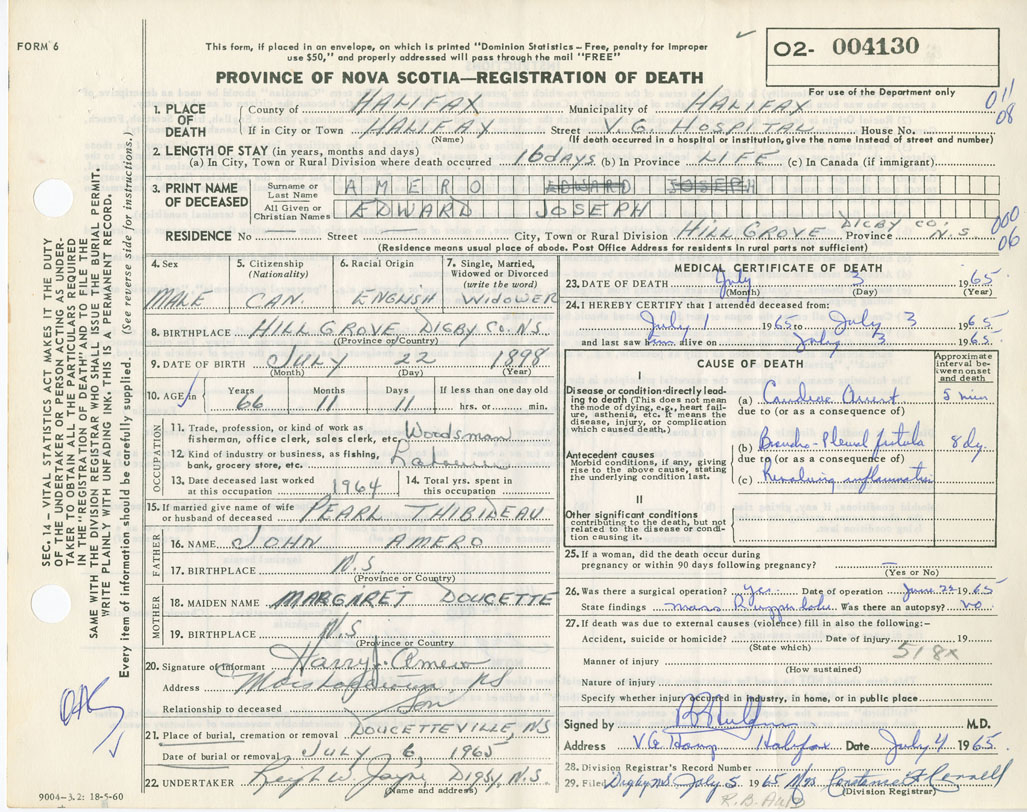 FORM 6
This form, if placed in an envelope, on which is printed "Dominion Statistics – Free, penalty for improper
use $50," and properly addressed will pass through the mail "FREE"
PROVINCE OF NOVA SCOTIA—REGISTRATION OF DEATH
02- 004130
For use of the Department only
011
08
1. PLACE OF DEATH
County of HALIFAX Municipality of HALIFAX
If in City or Town HALIFAX Street V.G. HOSPITAL House No.
(Name) (If death occurred in a hospital or institution, give the name instead of street and number)
2. LENGTH OF STAY (in years, months and days)
(a) In City, Town or Rural Division where death occurred 16 days (b) In Province LIFE (c) In Canada (if immigrant)
3. PRINT NAME OF DECEASED
Surname or Last Name AMERO EDWARD JOSEPH
All Given or Christian Names EDWARD JOSEPH
RESIDENCE No — Street — City, Town or Rural Division HILL GROVE DIGBY CO. Province N.S.
000
06
(Residence means usual place of abode. Post Office Address for residents in rural parts not sufficient)
4. Sex MALE
5. Citizenship (Nationality) CAN.
6. Racial Origin ENGLISH
7. Single, Married, Widowed or Divorced (write the word) WIDOWER
8. BIRTHPLACE HILL GROVE DIGBY CO. N.S.
(Province or Country)
9. DATE OF BIRTH JULY 22 1898
(Month) (Day) (Year)
10. AGE in Years 66 Months 11 Days 11 If less than one day old hrs. or min.
OCCUPATION
11. Trade, profession, or kind of work as
fisherman, office clerk, sales clerk, etc. Woodsman
12. Kind of industry or business, as fishing,
bank, grocery store, etc.
13. Date deceased last worked
at this occupation 1964
14. Total yrs. spent in
this occupation
15. If married give name of wife
or husband of deceased PEARL THIBIDEAU
FATHER
16. NAME JOHN AMERO
17. BIRTHPLACE N.S.
(Province or Country)
MOTHER
18. MAIDEN NAME MARGARET DOUCETTE
19. BIRTHPLACE N.S
(Province or Country)
20. Signature of Informant Harry Amero
Address NS
Relationship to deceased Son
21. Place of burial, cremation or removal DOUCETTEVILLE, NS
Date of burial or removal JULY 6, 1965
22. UNDERTAKER W. Jayne, DIGBY, N.S.
(Name and address)
MEDICAL CERTIFICATE OF DEATH
23. DATE OF DEATH July 3 1965
(Month) (Day) (Year)
24. I HEREBY CERTIFY that I attended deceased from:
July 1 1965 to July 3 1965
and last saw him alive on July 3 1965
CAUSE OF DEATH
Approximate interval between onset and death
I
Disease or condition directly lead-
ing to death (This does not mean
the mode of dying, e.g., heart fail-
ure, asthenia, etc. It means the
disease, injury, or complication
which caused death.)
(a) Cardiac Arrest 5 min
due to (or as a consequence of)
Antecedent causes
Morbid conditions, if any, giving
rise to the above cause, stating
the underlying condition last.
(b) Broncho-Pleural fistula 8 dy.
due to (or as a consequence of)
(c) inflammation
II
Other significant conditions
contributing to the death, but not
related to the disease or condi-
tion causing it.
25. If a woman, did the death occur during
pregnancy or within 90 days following pregnancy? —
(Yes or No)
26. Was there a surgical operation? yes Date of operation June 22 1965
State findings mass R upper lobe Was there an autopsy? no
27. If death was due to external causes (violence) fill in also the following:–
Accident, suicide or homicide? Date of injury 19
(State which)
518x
Manner of injury
(How sustained)
Nature of injury
Specify whether injury occurred in industry, in home, or in public place
Signed by M.D.
Address V.G. Hosp Halifax Date July 4 1965
28. Division Registrar's Record Number
29. Filed Digby NS July 5 1965 Mrs. Constance F Connell
(Division Registrar)
SEC. 14 – VITAL STATISTICS ACT MAKES IT THE DUTY
OF THE UNDERTAKER OR PERSON ACTING AS UNDER-
TAKER TO OBTAIN ALL THE PARTICULARS REQUIRED
IN THE "REGISTRATION OF DEATH" AND TO FILE THE
SAME WITH THE DIVISION REGISTRAR WHO SHALL ISSUE THE BURIAL PERMIT.
WRITE PLAINLY WITH UNFADING INK. THIS IS A PERMANENT RECORD.
Every item of information should be carefully supplied. (See reverse side for instructions.)
9004-3.2: 18-5-60